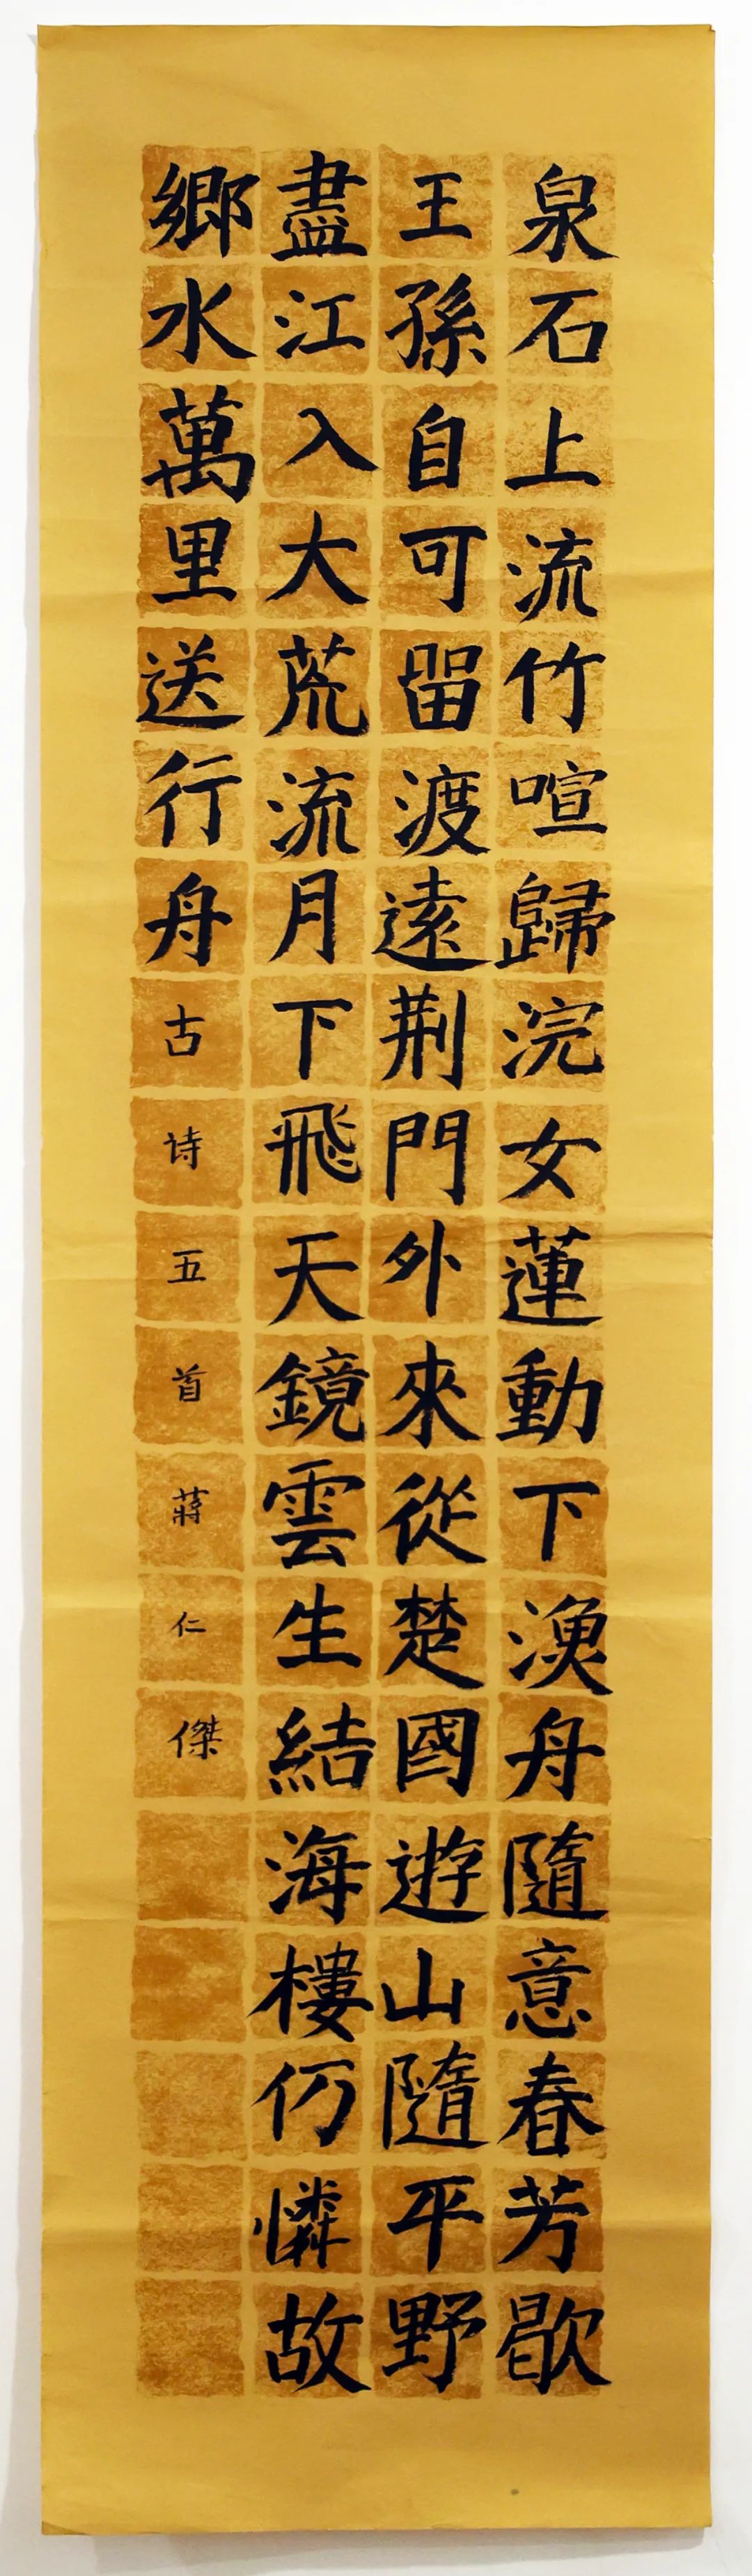 泉石上流竹喧歸浣女蓮動下漁舟隨意春芳歇
王孫自可留渡遠荆門外來從楚國遊山隨平野
盡江入大荒流月下飛天鏡雲生結海樓仍憐故
鄉水萬里送行舟古诗五首蔣仁傑